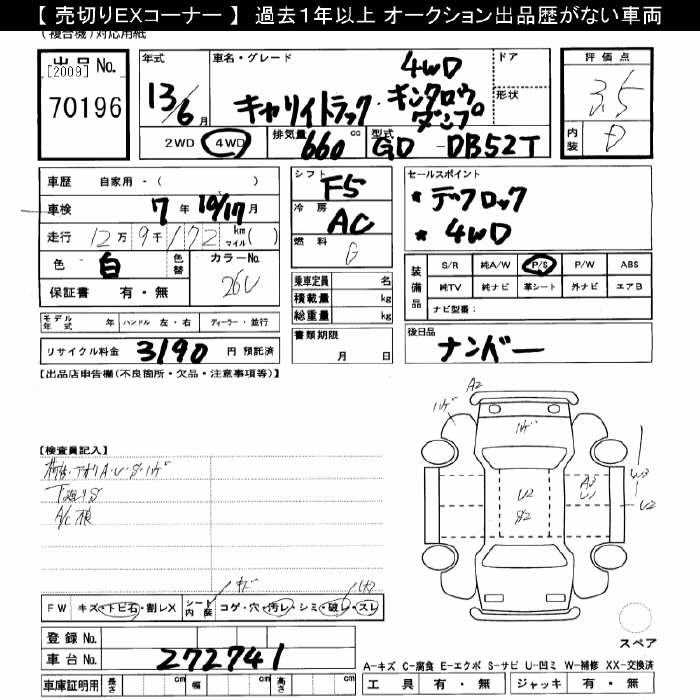 【 売切りEXコーナー 】 過去1年以上 オークション出品歴がない車両
(複合機)対応用紙
出品 No.
[2009]
70196
年式
13/6月
車名・グレード
4WD
キャリイトラック・キンクロウ
ダンプ
ドア
形状
評価点
3.5
内装
D
2WD 4WD
排気量 660 cc
型式 GD-DB52T
車歴 自家用・( )
車検 7年10/17月
走行 12万9千172 km マイル( )
色 白 色替 カラーNo. 26U
保証書 有・無
シフト F5
冷房 AC
燃料 G
乗車定員 名
積載量 kg
総重量 kg
セールスポイント
* デフロック
* 4WD
装備品
S/R 純A/W P/S P/W ABS
純TV 純ナビ 革シート 外ナビ エアB
ナビ型番:
モデル年式 年 ハンドル 左・右 ディーラー・並行
書類期限 月 日
後日品
ナンバー
リサイクル料金 3190 円 預託済
【出品店申告欄(不良箇所・欠品・注意事項等)】
A2
【検査員記入】
アオリA・U・S・ハゲ
下廻りS
A/C
U2
S2
A3
U1
W3
U2
FW キズ・トビ石・割レX シート内装 コゲ・穴・汚レ・シミ・破レ・スレ
キズ
(大)
スペア
登録 No.
車台 No. 272741
A-キズ C-腐食 E-エクボ S-サビ U-凹ミ W-補修 XX-交換済
車庫証明用 長さ cm 幅 cm 高さ cm
工具 有・無 ジャッキ 有・無